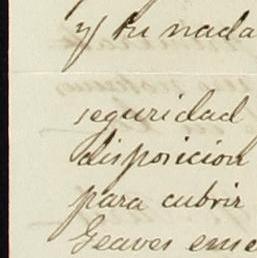 y tu nada
seguridad
disposicion
para cubrir
Geaves